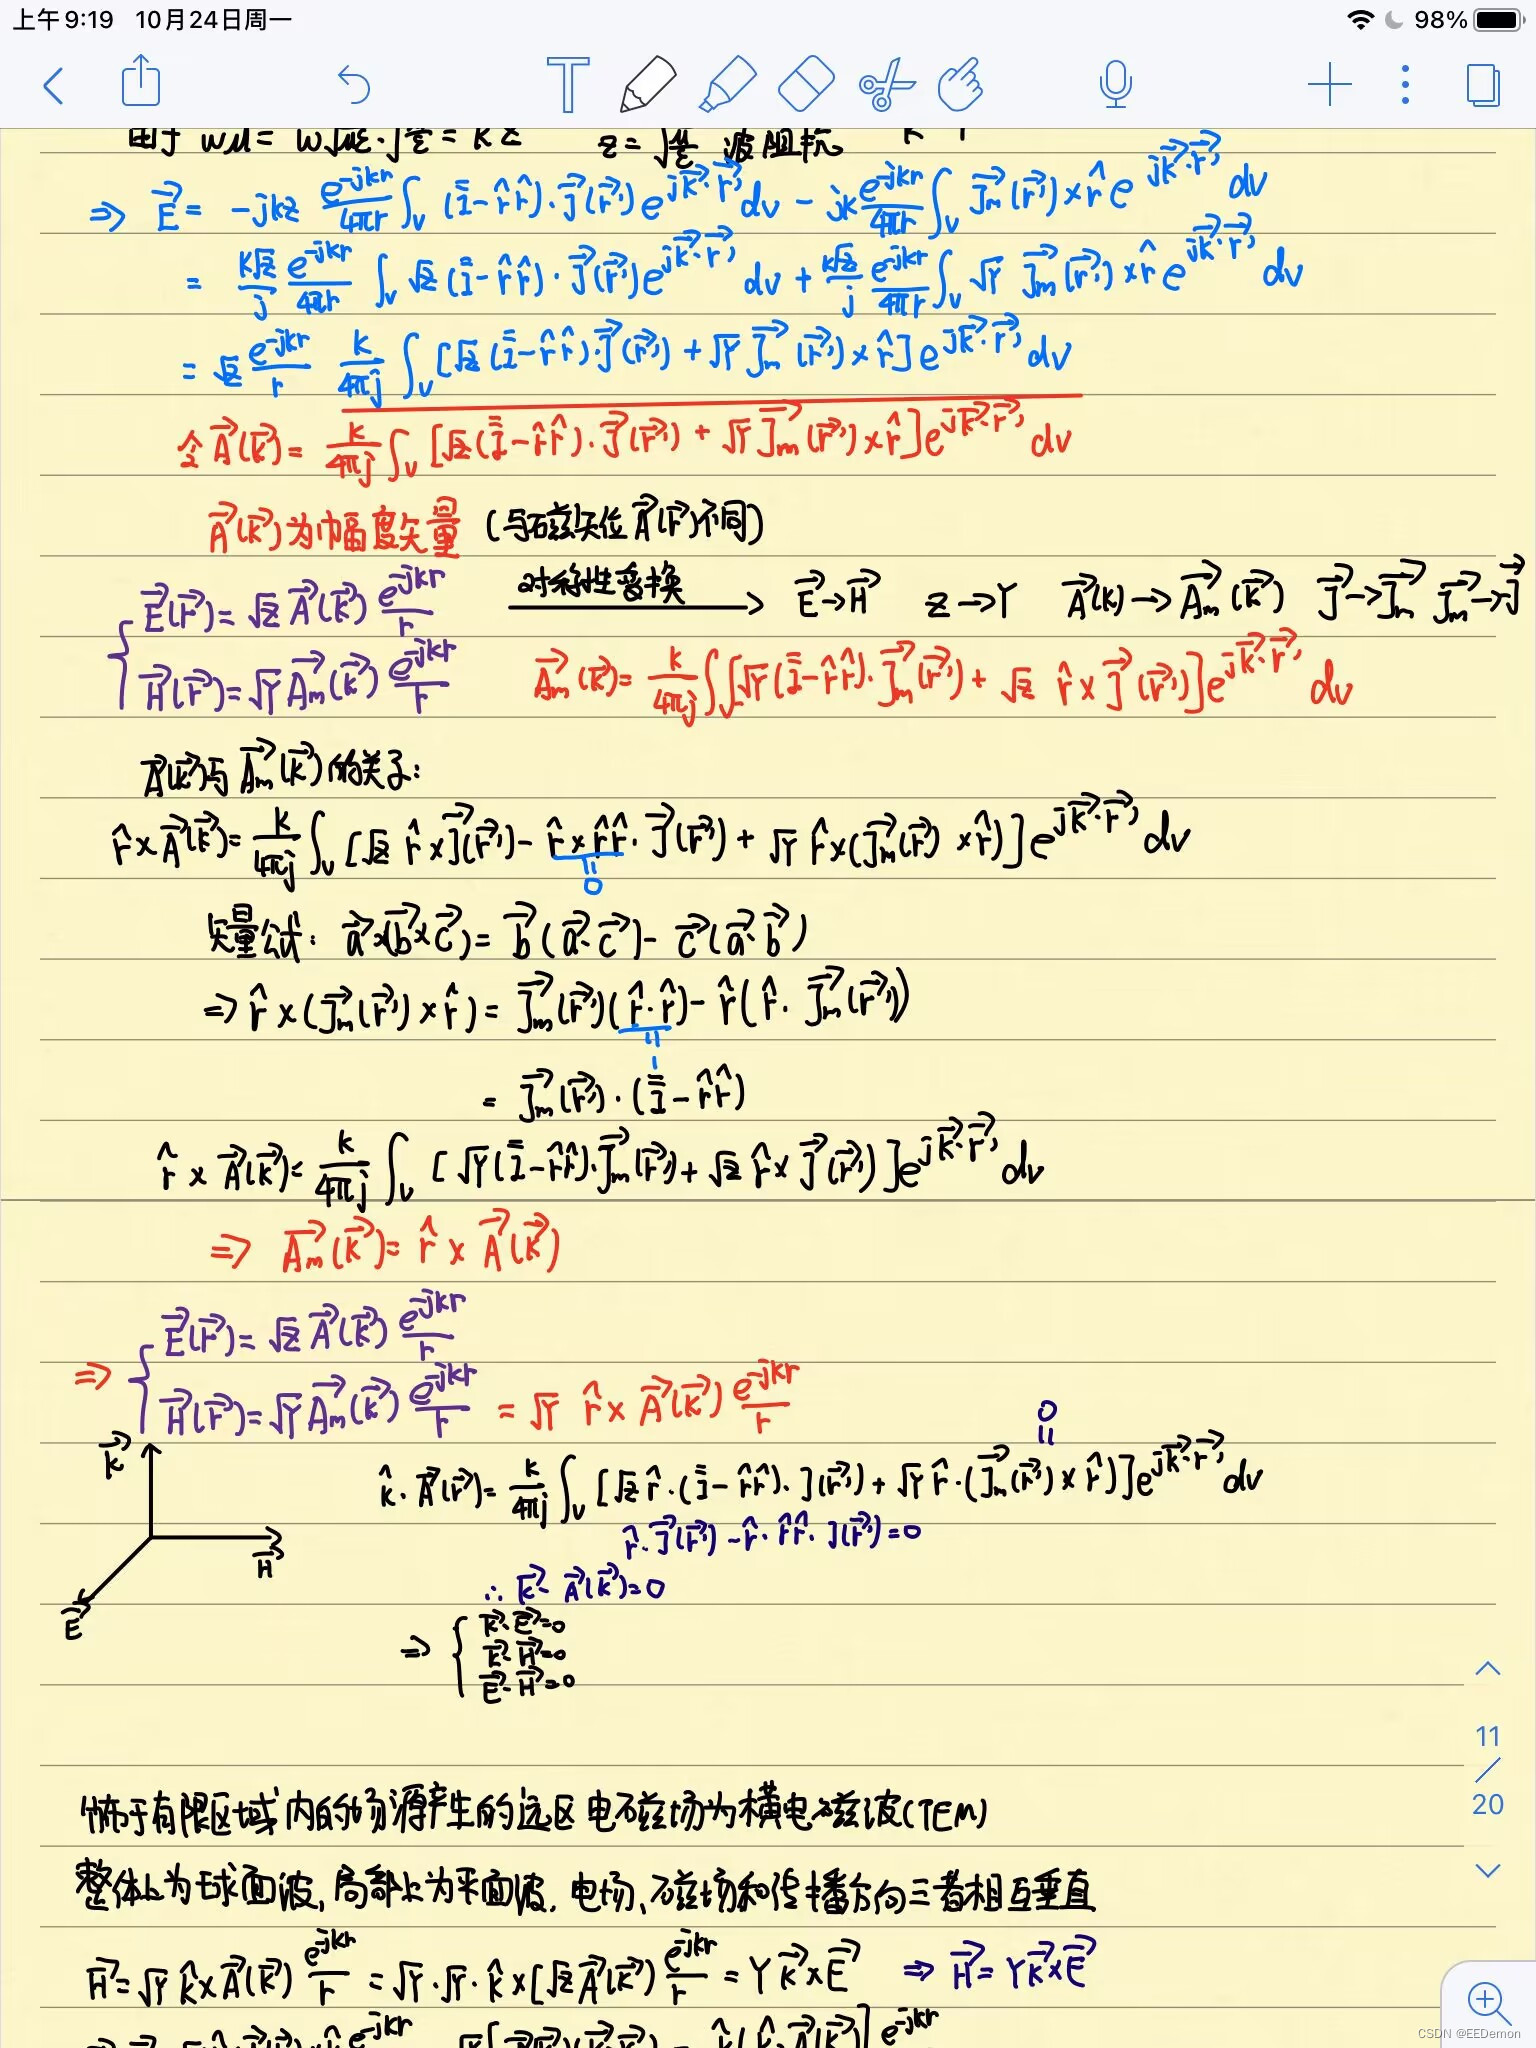 上午9:19 10月24日周一 98%
由于 ωμ = ω√με·√(μ/ε) = kz z = √(μ/ε) 波阻抗
⇒ E⃗ = -jkz e^{-jkr}/4πr ∫_V (I̿-r̂r̂)·J⃗(r⃗')e^{jk⃗·r⃗'}dv - jk e^{-jkr}/4πr ∫_V J⃗m(r⃗')×r̂ e^{jk⃗·r⃗'}dv
= k√z/j e^{-jkr}/4πr ∫_V √z(I̿-r̂r̂)·J⃗(r⃗')e^{jk⃗·r⃗'}dv + k√z/j e^{-jkr}/4πr ∫_V √Y J⃗m(r⃗')×r̂ e^{jk⃗·r⃗'}dv
= √z e^{-jkr}/r k/4πj ∫_V [√z(I̿-r̂r̂)·J⃗(r⃗') + √Y J⃗m(r⃗')×r̂]e^{jk⃗·r⃗'}dv
令 A⃗(k⃗) = k/4πj ∫_V [√z(I̿-r̂r̂)·J⃗(r⃗') + √Y J⃗m(r⃗')×r̂]e^{jk⃗·r⃗'}dv
A⃗(k⃗)为幅度矢量 (与磁矢位A⃗(r⃗)不同)
E⃗(r⃗) = √z A⃗(k⃗) e^{-jkr}/r 对称性变换 E⃗→H⃗ z→Y A⃗(k)→A⃗m(k⃗) J⃗→J⃗m J⃗m→J⃗
H⃗(r⃗) = √Y A⃗m(k⃗) e^{-jkr}/r A⃗m(k⃗) = k/4πj ∫_V [√Y(I̿-r̂r̂)·J⃗m(r⃗') + √z r̂×J⃗(r⃗')]e^{jk⃗·r⃗'}dv
A⃗(k⃗)与A⃗m(k⃗)的关系:
r̂×A⃗(k⃗) = k/4πj ∫_V [√z r̂×J⃗(r⃗') - r̂×r̂r̂·J⃗(r⃗') + √Y r̂×(J⃗m(r⃗')×r̂)]e^{jk⃗·r⃗'}dv
=0
矢量公式: a⃗×(b⃗×c⃗) = b⃗(a⃗·c⃗) - c⃗(a⃗·b⃗)
⇒ r̂×(J⃗m(r⃗')×r̂) = J⃗m(r⃗')(r̂·r̂) - r̂(r̂·J⃗m(r⃗'))
=1
= J⃗m(r⃗')·(I̿-r̂r̂)
r̂×A⃗(k⃗) = k/4πj ∫_V [√Y(I̿-r̂r̂)·J⃗m(r⃗') + √z r̂×J⃗(r⃗')]e^{jk⃗·r⃗'}dv
⇒ A⃗m(k⃗) = r̂×A⃗(k⃗)
E⃗(r⃗) = √z A⃗(k⃗) e^{-jkr}/r
⇒ H⃗(r⃗) = √Y A⃗m(k⃗) e^{-jkr}/r = √Y r̂×A⃗(k⃗) e^{-jkr}/r
0=
k⃗
k̂·A⃗(r⃗) = k/4πj ∫_V [√z r̂·(I̿-r̂r̂)·J(r⃗') + √Y r̂·(J⃗m(r⃗')×r̂)]e^{jk⃗·r⃗'}dv
r̂·J⃗(r⃗') - r̂·r̂r̂·J(r⃗') = 0
H⃗
∴ k⃗·A⃗(k⃗) = 0
E⃗
k⃗·E⃗=0
⇒ k⃗·H⃗=0
E⃗·H⃗=0
11
/
20
分布于有限区域内的场源产生的远区电磁场为横电磁波(TEM)
整体上为球面波,局部上为平面波.电场、磁场和传播方向三者相互垂直
H⃗ = √Y k̂×A⃗(k⃗) e^{-jkr}/r = √Y·√Y·k̂×[√z A⃗(k⃗) e^{-jkr}/r = Y k⃗×E⃗ ⇒ H⃗ = Y k⃗×E⃗
CSDN @EEDemon